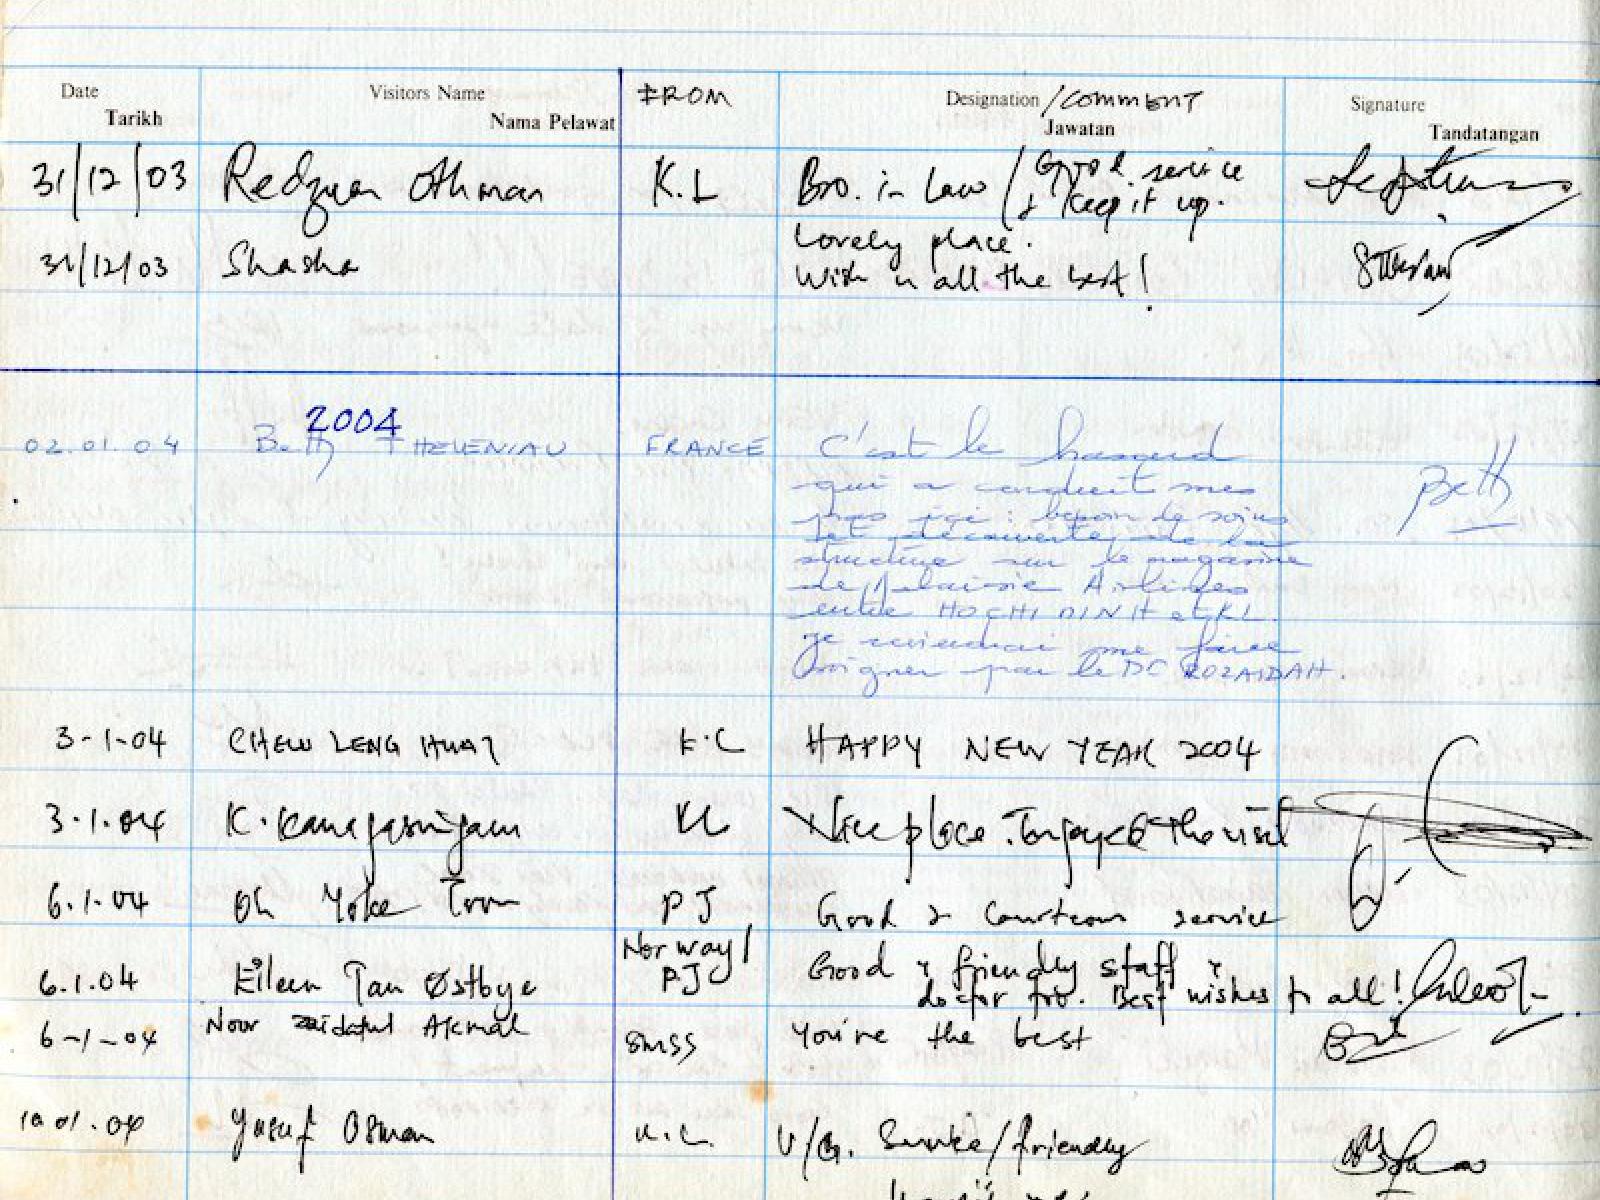 Date Visitors Name FROM Designation /COMMENT Signature
Tarikh Nama Pelawat Jawatan Tandatangan
31/12/03 Redzuan Othman K.L Bro. in Law / Good service
& Keep it up.
Lovely place.
31/12/03 Shasha Wish u all the best!
2004
02.01.04 Betty THELENIAU FRANCE C'est le hasard Betty
qui a conduit mes
pas ici : besoin de soins
et découverte de la
structure sur le magazine
de Malaisie Airlines
entre HO CHI MINH et KL.
Je reviendrai me faire
soigner par le DC ROZAIDAH.
3-1-04 CHEW LENG HUAT K.L HAPPY NEW YEAR 2004
3.1.04 K. Kanagasingam KL Nice place. Enjoyed the visit
6.1.04 Oh Yoke Toon PJ Good & Courteous service
Norway/
6.1.04 Eileen Tan Østbye PJ Good & friendly staff &
doctor too. Best wishes to all!
6-1-04 Noor zaidatul Akmal SMSS You're the best
10.01.04 Yusuf Osman K.L. V/G. Service/friendly